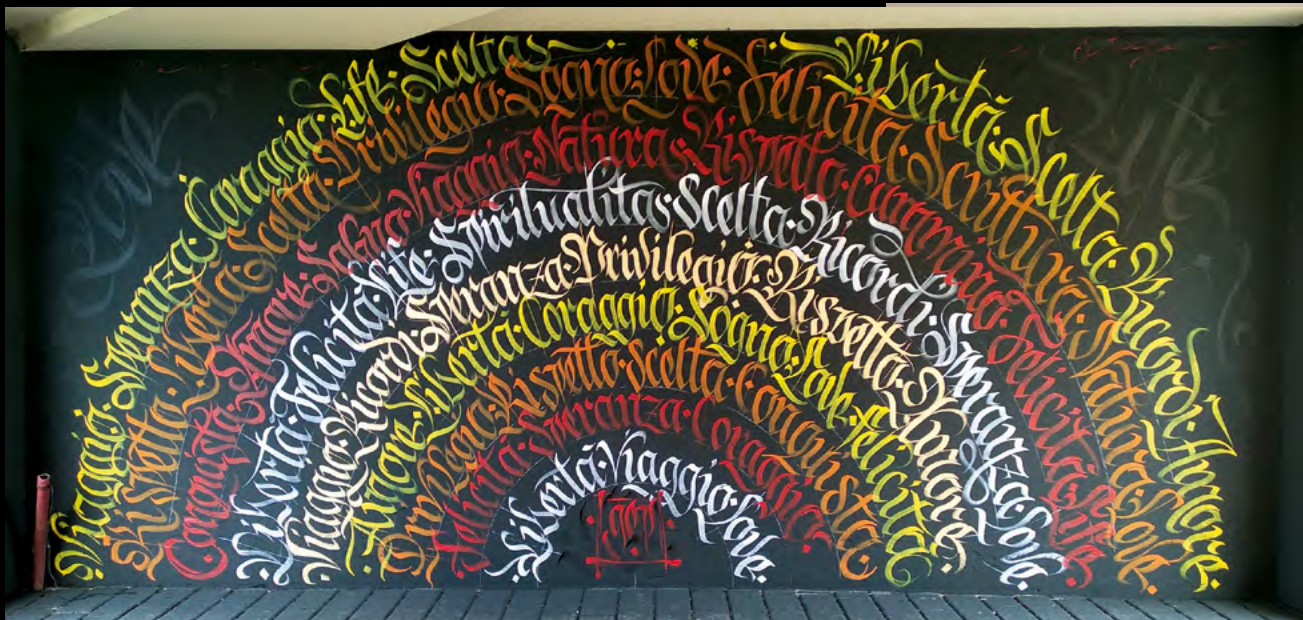 Viaggio · Speranza · Coraggio · Life · Scelta · Libertà · Scelta · Ricordi · Amore ·
Rispetto · Libertà · Scelta · Privilegio · Sogno · Love · Felicità · Scrittura · Natura · Love ·
Conquista · Amore · Viaggio · Natura · Rispetto · Cammino · Felicità · Life ·
Libertà · Felicità · Life · Spiritualità · Scelta · Ricordi · Speranza · Love ·
Viaggio · Ricordi · Speranza · Privilegio · Rispetto · Amore ·
Amore · Libertà · Coraggio · Sogno · Love · Felicità ·
Rispetto · Scelta · Conquista ·
Speranza · Coraggio ·
Libertà · Viaggio · Love ·